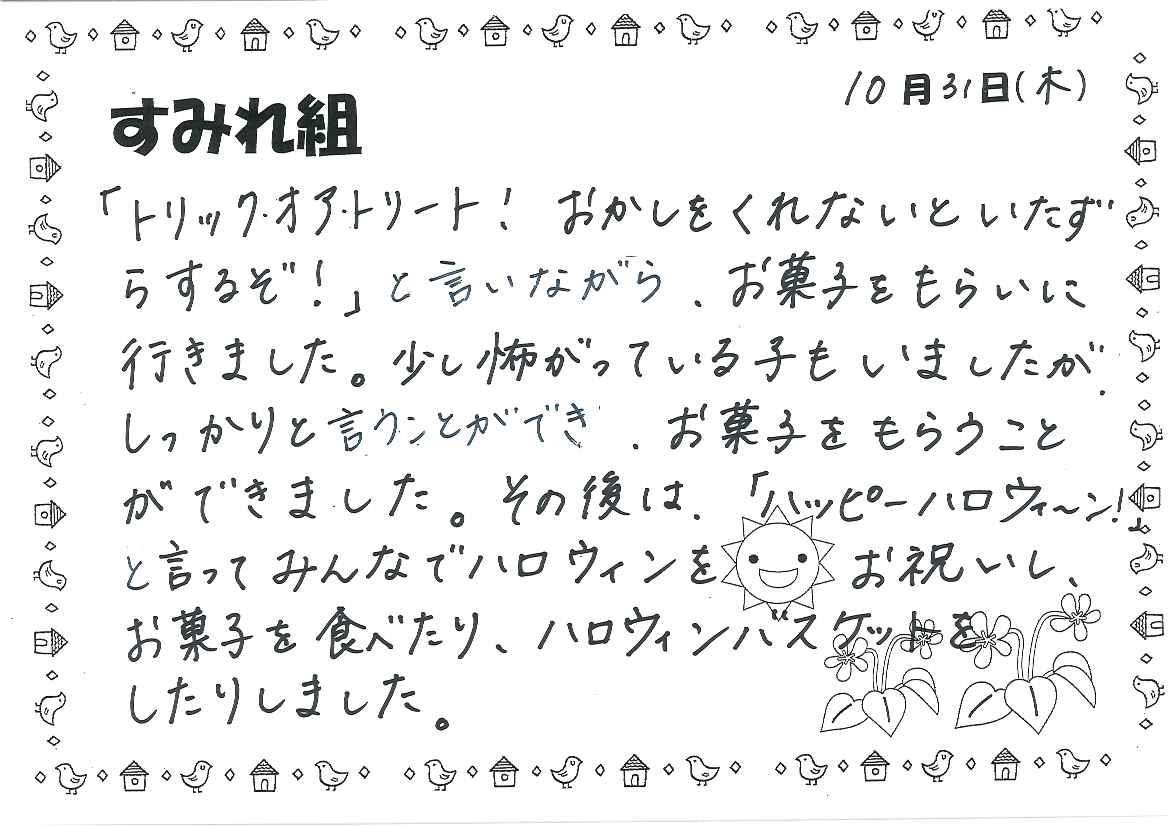 10月31日(木)
すみれ組
「トリック・オア・トリート! おかしをくれないといたず
らするぞ!」と言いながら、お菓子をもらいに
行きました。少し怖がっている子もいましたが、
しっかりと言うことができ、お菓子をもらうこと
ができました。その後は、「ハッピーハロウィ~ン!」
と言ってみんなでハロウィンをお祝いし、
お菓子を食べたり、ハロウィンバスケットを
したりしました。